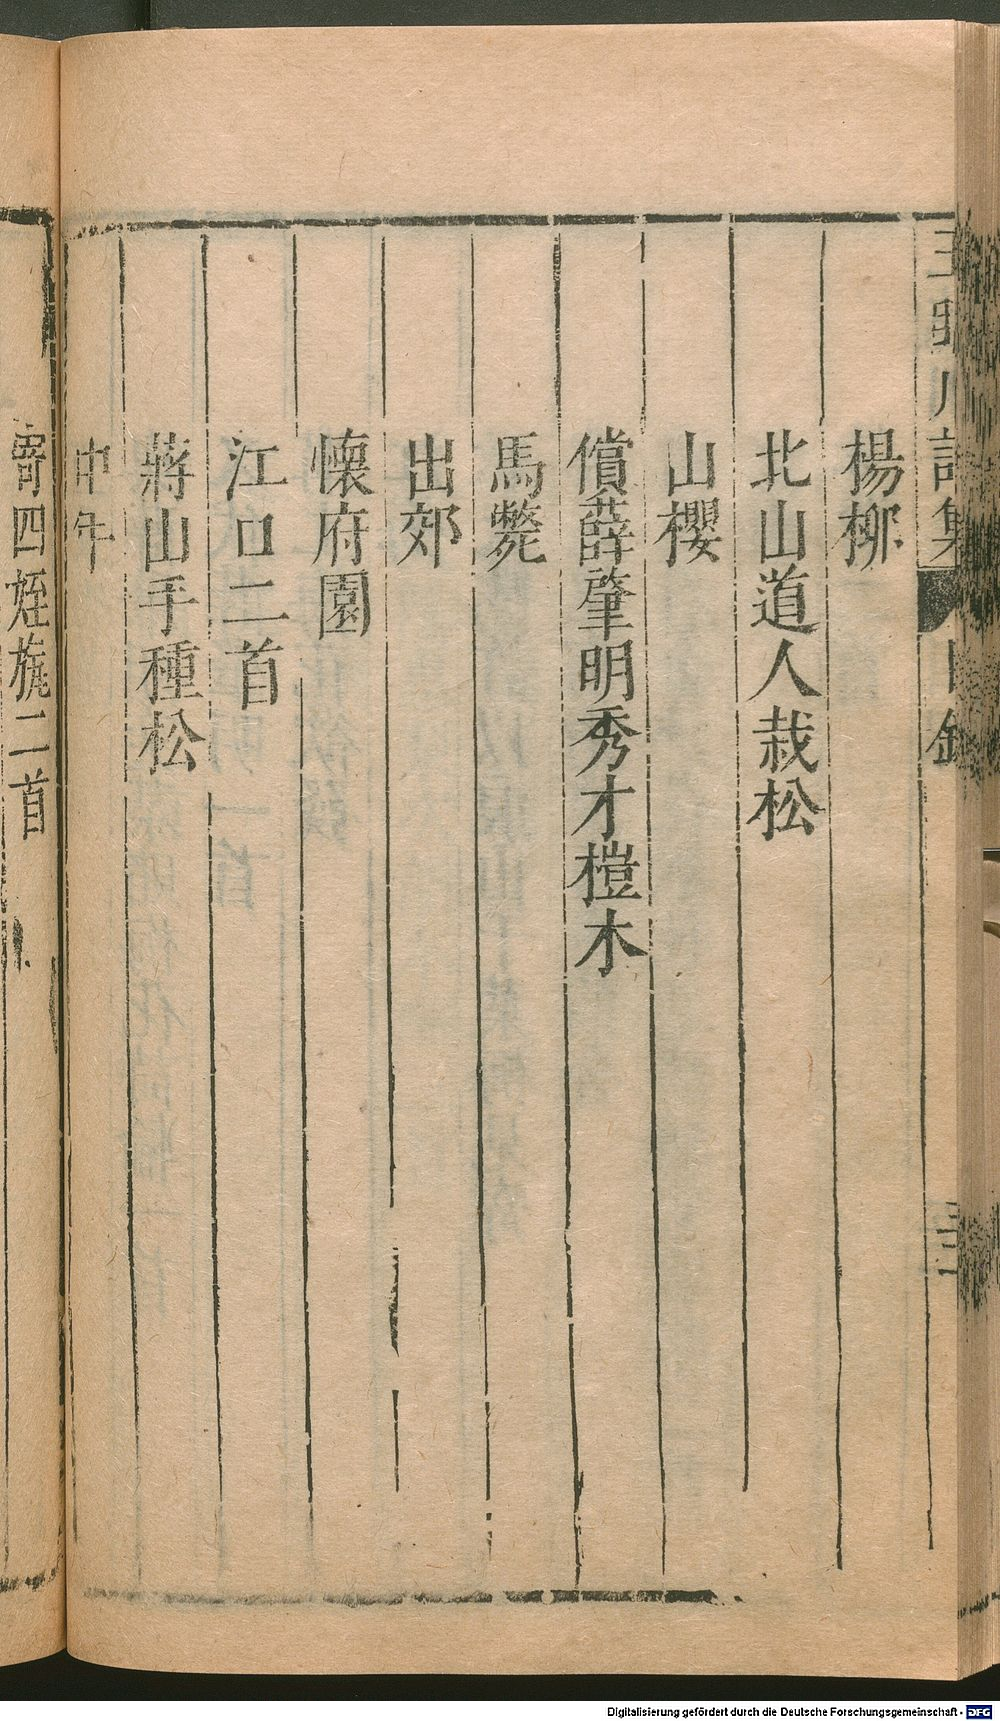 楊柳
北山道人栽松
山櫻
償薛肇明秀才榿木
馬斃
出郊
懷府園
江口二首
蔣山手種松
中年
寄四姪旊二首
Digitalisierung gefördert durch die Deutsche Forschungsgemeinschaft - DFG